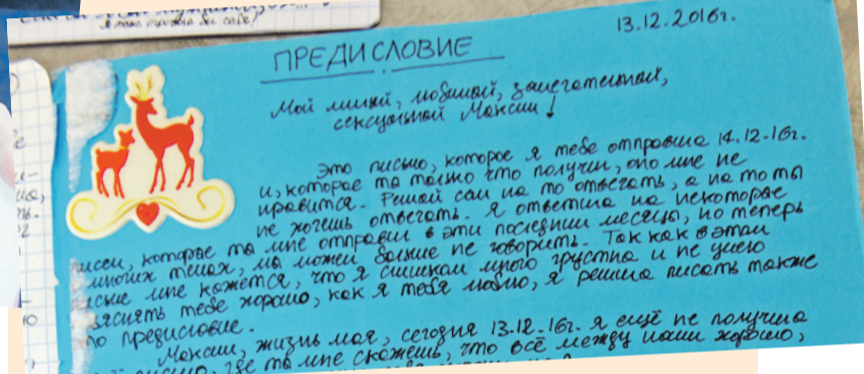 13.12.2016г.
ПРЕДИСЛОВИЕ
Мой милый, любимый, замечательный,
сексуальный Максим!
Это письмо, которое я тебе отправила 14.12-16г.
и, которое ты только что получил, оно мне не
нравится. Решай сам на то отвечать, а на то ты
не хочешь отвечать. Я ответила на некоторые
писем, которые ты мне отправил в эти последнии месецы, но теперь
многих темах, мы можем больше не говорить. Так как в этом
письме мне кажется, что я слишком много грустна и не умею
яснять тебе хорошо, как я тебя люблю, я решила писать также
это предисловие.
Максим, жизнь моя, сегодня 13-12-16г. я ещё не получила
письмо, где ты мне скажешь, что всё между нами хорошо,